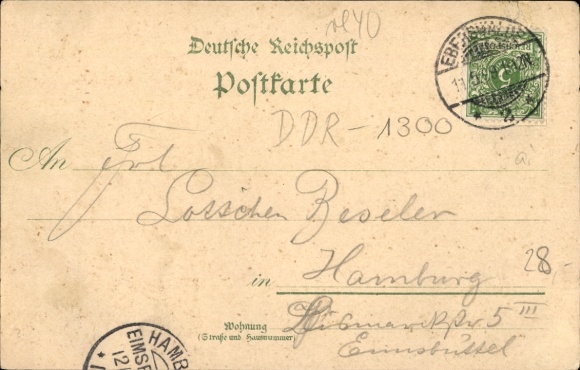 Deutsche Reichspost
Postkarte
DDR-1300
An Frl.
Lottchen Beseler
in Hamburg
28-
Wohnung
(Straße und Hausnummer)
Bismarckstr. 5 III
Eimsbüttel
HAMB
EIMSB
12